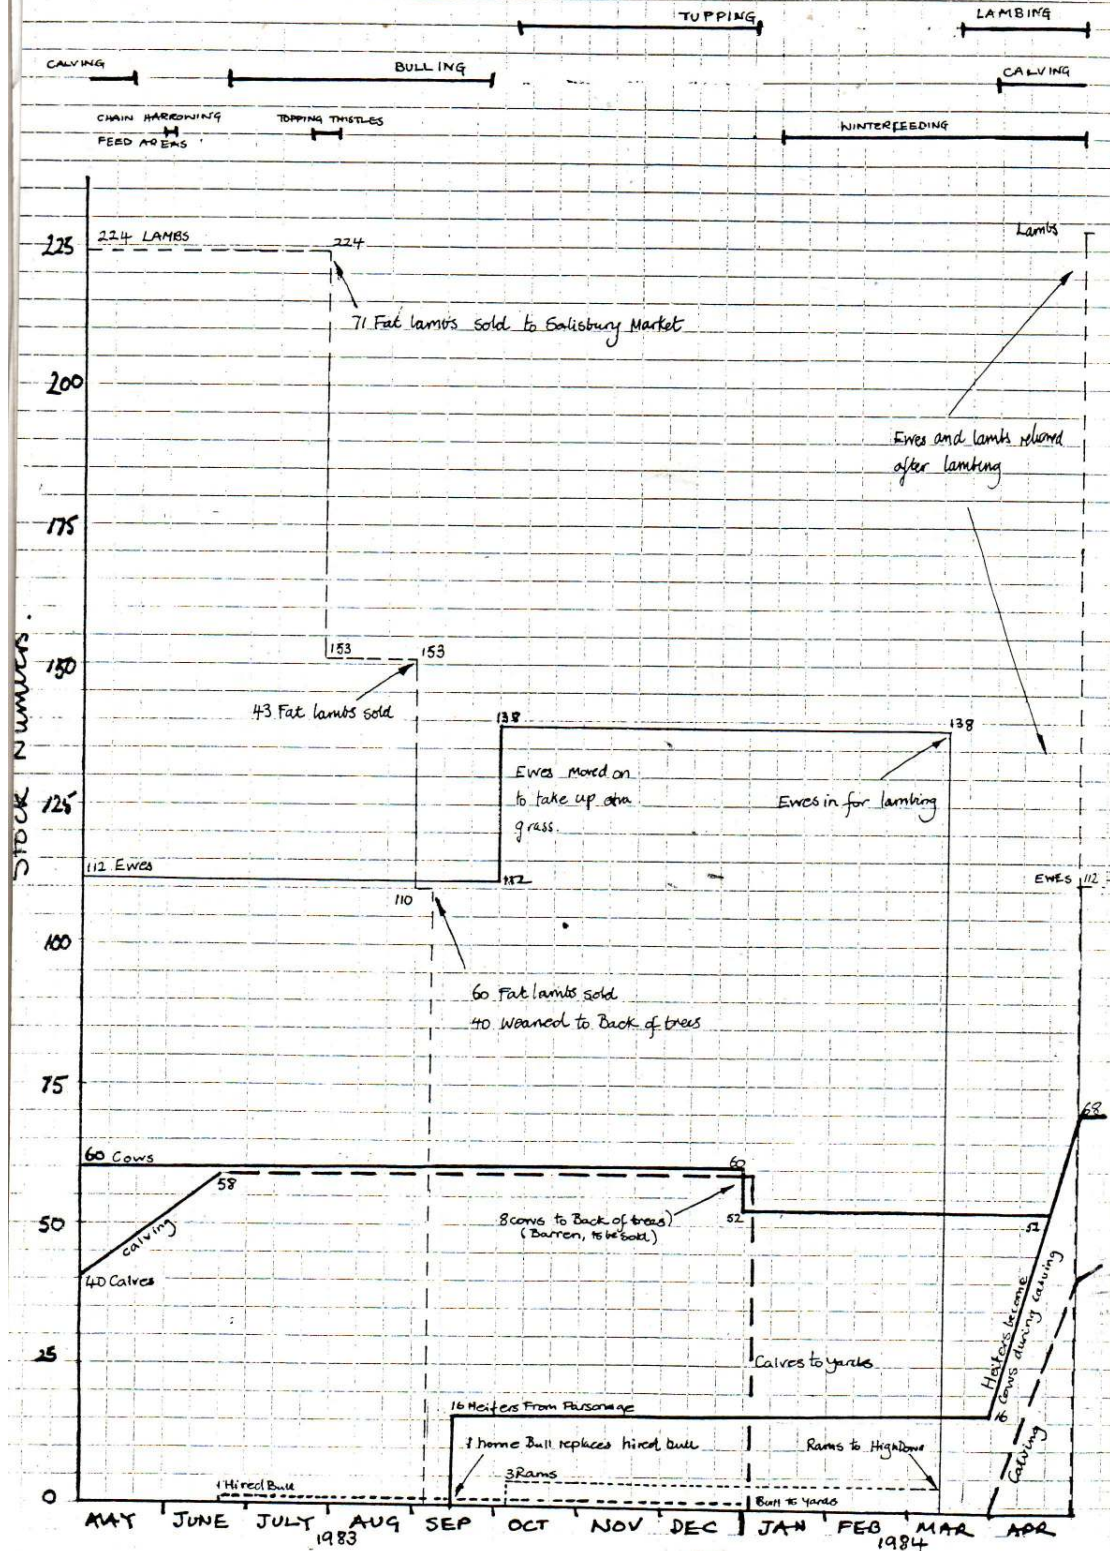 TUPPING
LAMBING
CALVING
BULLING
CALVING
CHAIN HARROWING
FEED AREAS
TOPPING THISTLES
WINTERFEEDING
Stock Numbers.
225
224 LAMBS
224
Lambs
71 Fat lambs sold to Salisbury Market
200
Ewes and lambs
after lambing
175
150
153
153
43 Fat lambs sold
138
138
Ewes moved on
to take up
grass.
Ewes in for lambing
125
112 Ewes
112
110
EWES 112
100
60 Fat lambs sold
40 Weaned to Back of trees
75
68
60 Cows
60
58
Calving
50
8 cows to Back of trees)
(Barren, to be sold)
52
52
40 Calves
25
Calves to yards
Heifers become
Cows during calving
16 Heifers From Parsonage
16
Calving
1 home Bull replaces hired bull
Rams to High Down
3 Rams
1 Hired Bull
Bull to yards
0
MAY JUNE JULY AUG SEP OCT NOV DEC JAN FEB MAR APR
1983 1984